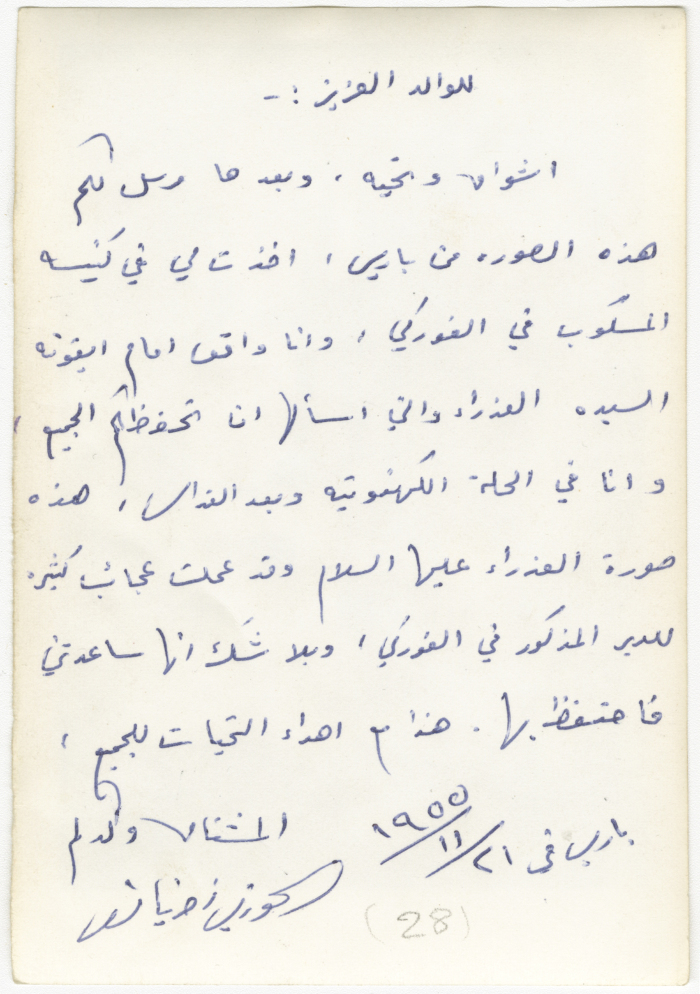 للوالد العزيز :-
اشواق وتحيه ، وبعد ها مرسل لكم
هذه الصوره من باريس ، اخذت لي في كنيسه
المسكوب في الفوركي ، وانا واقف امام ايقونه
السيده العذراء والتي اسألها ان تحفظكم الجميع ،
وانا في الحلة الكهنوتيه وبعد القداس ، هذه
صورة العذراء عليها السلام وقد عملت عجائب كثيره
للدير المذكور في الفوركي ، وبلا شك انها ساعدتني
فاحتفظ بها . هذا مع اهداء التحيات للجميع ،
المشتاق ولدكم
باريس في ٢١/١١/١٩٥٥
الخوري
(28)